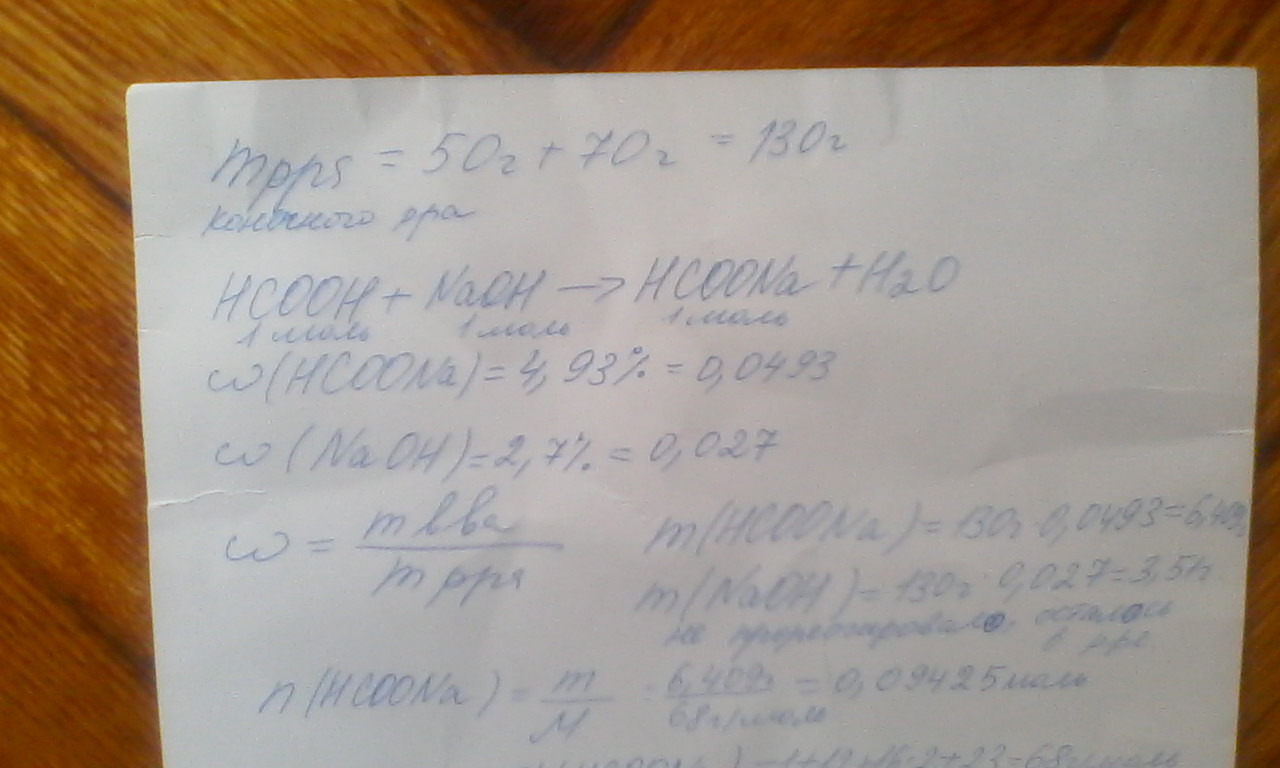 mрра = 50г + 70г = 130г
конечного рра
HCOOH + NaOH → HCOONa + H2O
1 моль 1 моль 1 моль
ω(HCOONa) = 4,93% = 0,0493
ω(NaOH) = 2,7% = 0,027
ω = m вва / m рра
m(HCOONa) = 130г · 0,0493 = 6,409г
m(NaOH) = 130г · 0,027 = 3,51г
не прореагировало, осталось
в рре
n(HCOONa) = m / M = 6,409г / 68г/моль = 0,09425 моль
1+12+16·2+23=68г/моль